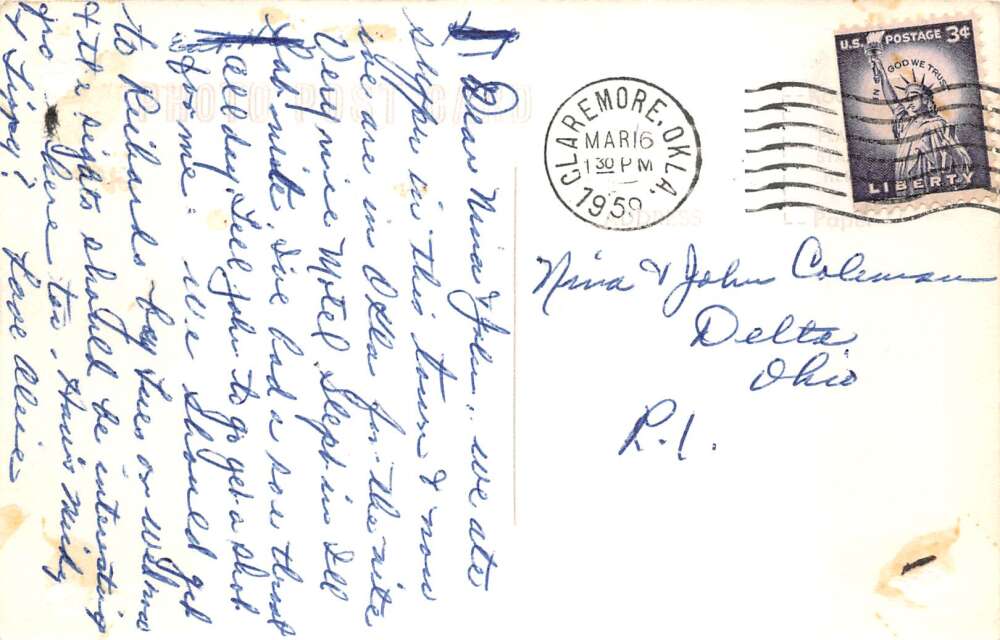 Dear Nina & John: we ate
supper in this town & now
we are in Okla for the nite
Very nice Motel. Slept in Ill
last nite. I've had a sore throat
all day. Tell John to go get a shot
for me. We should get
to by Tues or Wed now
& the sights should be interesting
from there too. How's Mick
& Love Alice
PHOTO POST CARD
CLAREMORE, OKLA.
MAR 16
1 30 PM
1959
U.S. POSTAGE 3¢
IN GOD WE TRUST
LIBERTY
Address
Paper
Nina & John Coleman
Delta
Ohio
R.1.